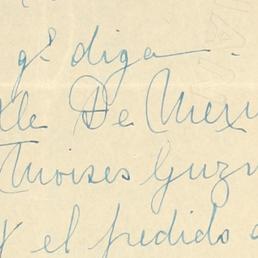 qe diga.
De Mex
Moises Guz
y el pedido